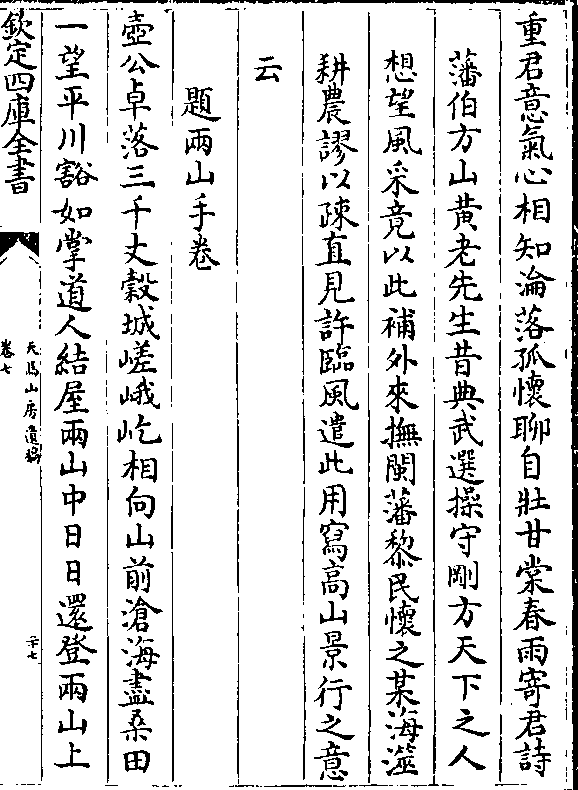 重君意氣心相知淪落孤懷聊自壯甘棠春雨寄君詩
藩伯方山黃老先生昔典武選操守剛方天下之人
想望風采竟以此補外來撫閩藩黎民懷之某海澨
耕農謬以疎直見許臨風遣此用寫高山景行之意
云
題兩山手卷
壺公卓落三千丈穀城嵯峨屹相向山前滄海盡桑田
一望平川豁如掌道人結屋兩山中日日還登兩山上
欽定四庫全書
天馬山房遺稿
卷七
二十七